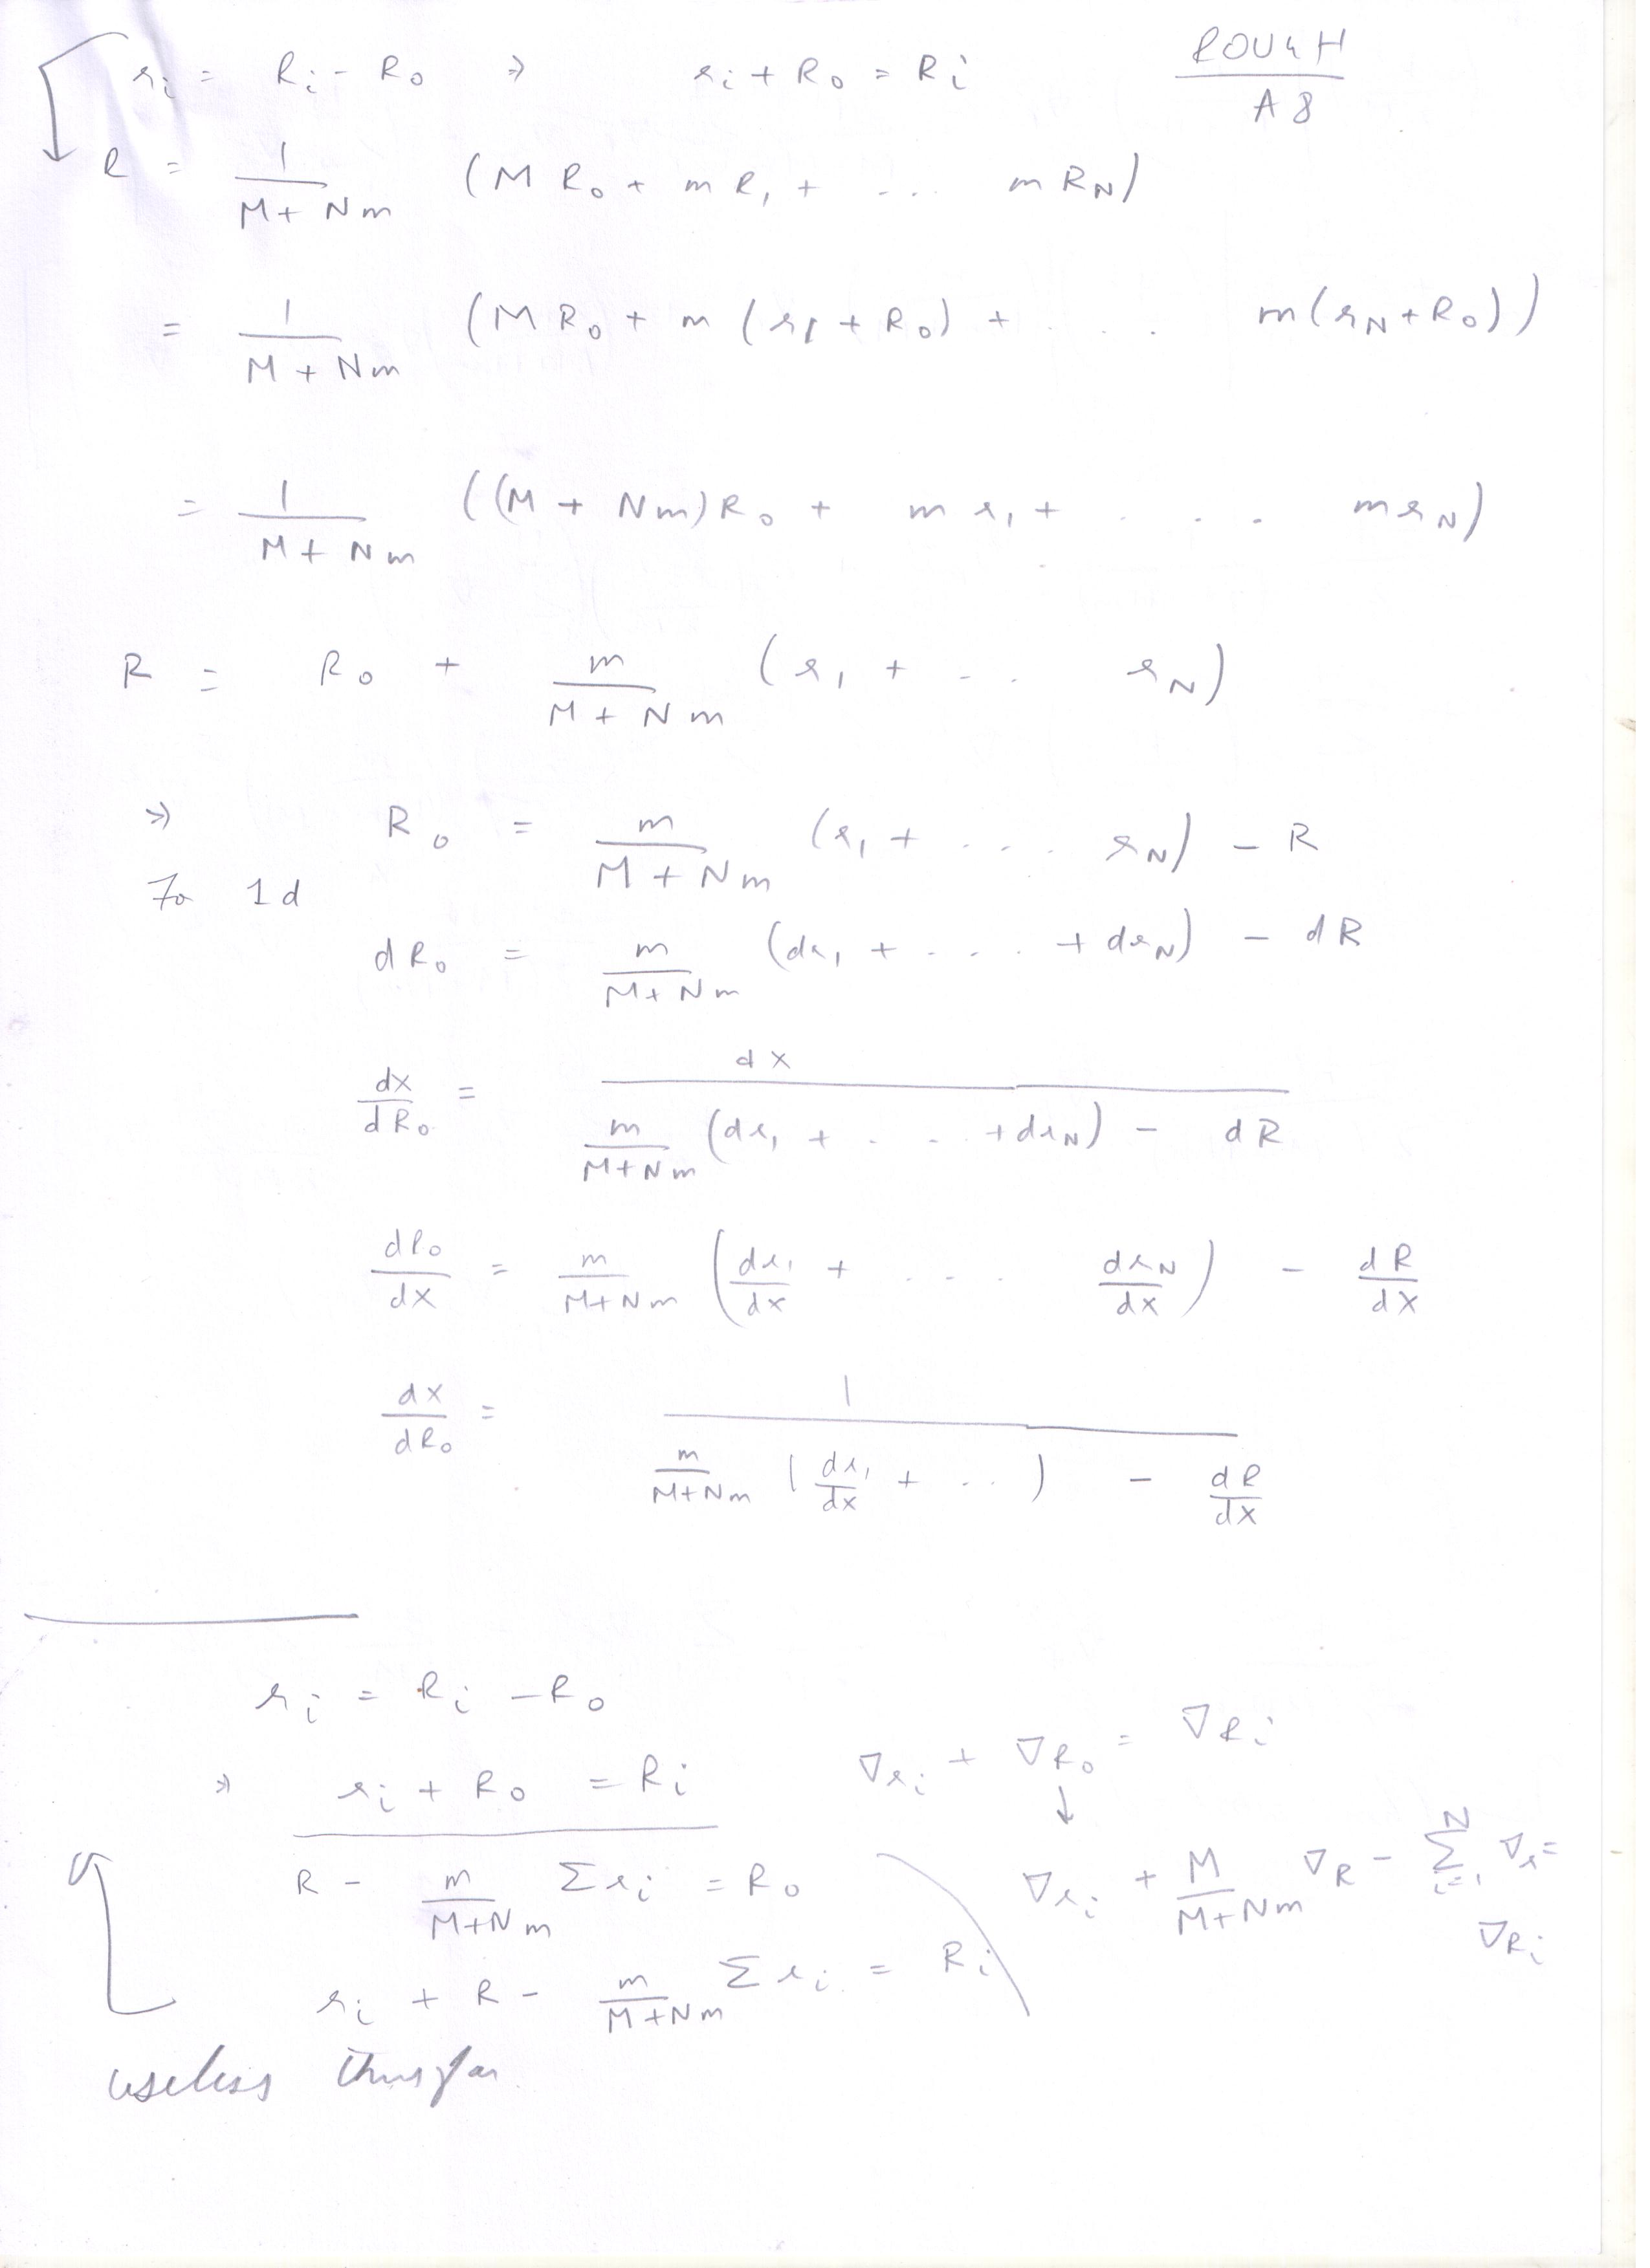 r_i = R_i - R_0 ⇒ r_i + R_0 = R_i
ROUGH
A8
R = \frac{1}{M + Nm} (M R_0 + m R_1 + ... m R_N)
= \frac{1}{M + Nm} (M R_0 + m (r_1 + R_0) + .... m(r_N + R_0))
= \frac{1}{M + Nm} ((M + Nm) R_0 + m r_1 + .... m r_N)
R = R_0 + \frac{m}{M + Nm} (r_1 + ... r_N)
⇒ R_0 = \frac{m}{M + Nm} (r_1 + .... r_N) - R
Fo 1d
dR_0 = \frac{m}{M + Nm} (dr_1 + .... + dr_N) - dR
\frac{dx}{dR_0} = \frac{dx}{\frac{m}{M+Nm} (dr_1 + .... + dr_N) - dR}
\frac{dR_0}{dx} = \frac{m}{M+Nm} (\frac{dr_1}{dx} + .... \frac{dr_N}{dx}) - \frac{dR}{dx}
\frac{dx}{dR_0} = \frac{1}{\frac{m}{M+Nm} (\frac{dr_1}{dx} + ...) - \frac{dR}{dx}}
r_i = R_i - R_0
⇒ r_i + R_0 = R_i
R - \frac{m}{M+Nm} Σ r_i = R_0
r_i + R - \frac{m}{M+Nm} Σ r_i = R_i
∇_{r_i} + ∇_{R_0} = ∇_{R_i}
↓
∇_{r_i} + \frac{M}{M+Nm} ∇_R - \sum_{i=1}^{N} ∇_r =
∇_{R_i}
useless thus far